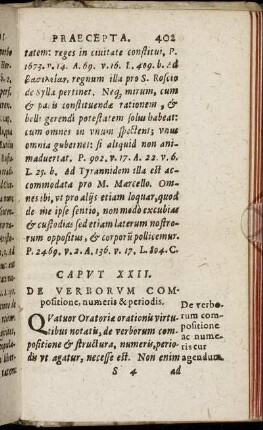 PRAECEPTA. 402
tatem: reges in ciuitate constitur, P.
1673. v. 14. A. 69. v. 16. L. 409. b. Ad
illa pro S. Roscio
de Sylla pertinet. Neq, mirum, cum
& pacis constituendæ rationem, &
belli gerendi potestatem solus habeat:
cum omnes in vnum spectent; vnus
omnia gubernet: si aliquid non ani
maduertat. P. 902. v. 17. A. 22. v. 6.
L. 25. b. Ad Tyrannidem illa est ac
commodata pro M. Marcello. Om-
nes tibi, vt pro alijs etiam loquar, quod
de me ipse sentio, non modo excubias
& custodias sed etiam laterum nostro-
rum oppositus, & corporū pollicemur.
P. 2469. v. 2. A. 136. v. 17. L. 804. C.
CAPVT XXII.
DE VERBORVM COM-
positione, numeris & periodis.
QVatuor Oratoriæ orationis virtu-
tibus notatis, de verborum com-
positione & structura, numeris, perio-
dis vt agatur, necesse est. Non enim
S 4 ad
De verbo-
rum com-
positione
ac nume-
ris cur
agendum.